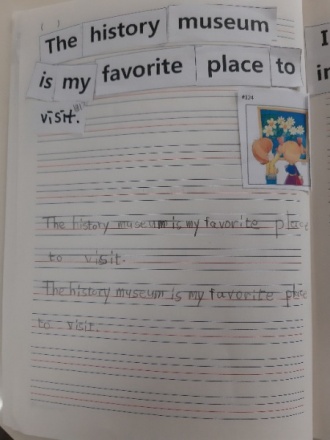 ( )
The history museum
is my favorite place to
visit.
#124
The history museum is my favorite place
to visit.
The history museum is my favorite place
to visit.
I
in